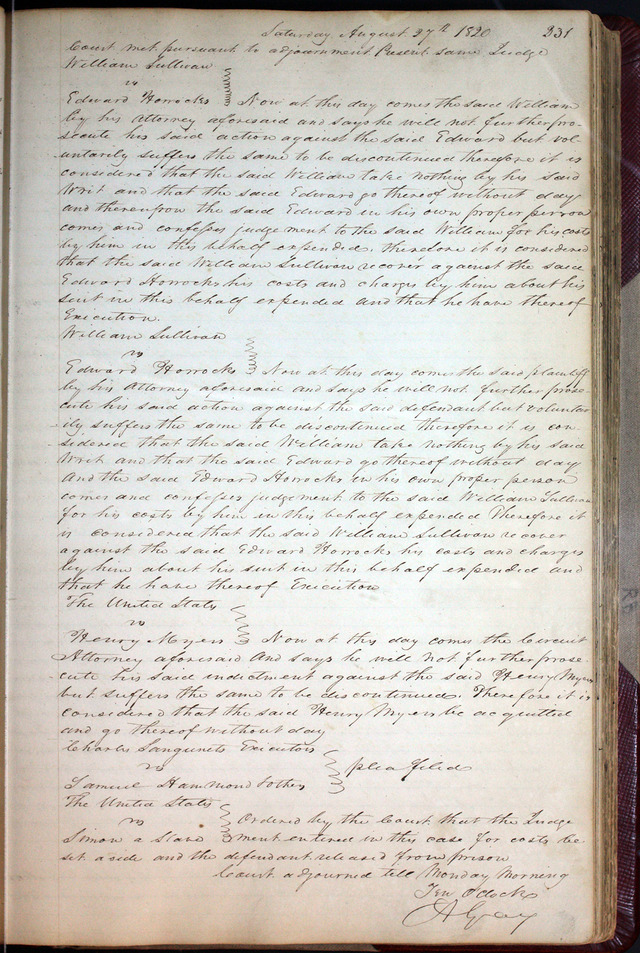 Saturday August 27th 1820 231
Court met pursuant to adjournment Present same Judge
William Sullivan
vs
Edward Horrocks Now at this day comes the said William
by his Attorney aforesaid and says he will not further pro-
secute his said action against the said Edward but vol-
untarily suffers the same to be discontinued therefore it is
considered that the said William take nothing by his said
Writ and that the said Edward go thereof without day
and thereupon the said Edward in his own proper person
comes and confesses judgement to the said William for his costs
by him in this behalf expended. therefore it is considered
that the said William Sullivan recover against the said
Edward Horrocks his costs and charges by him about his
suit in this behalf expended and that he have thereof
Execution.
William Sullivan
vs
Edward Horrocks Now at this day comes the said plaintiff
by his Attorney aforesaid and says he will not further prose-
cute his said action against the said defendant but voluntar
ily suffers the same to be discontinued therefore it is con-
sidered that the said William take nothing by his said
Writ and that the said Edward go thereof without day
And the said Edward Horrocks in his own proper person
comes and confesses judgement to the said William Sullivan
for his costs by him in this behalf expended Therefore it
is considered that the said William Sullivan recover
against the said Edward Horrocks his costs and charges
by him about his suit in this behalf expended and
that he have thereof Execution
The United States
vs
Henry Myers Now at this day comes the Circuit
Attorney aforesaid and says he will not further prose-
cute his said indictment against the said Henry Myers
but suffers the same to be discontinued. Therefore it is
considered that the said Henry Myers be acquitted
and go thereof without day
Charles Sanguinets Executors
vs plea filed
Samuel Hammond & others
The United States
vs Ordered by the Court that the Judge
Simon a Slave ment entered in this case for costs be
set aside and the defendant released from prison
Court adjourned till Monday Morning
Ten Oclock
A Gray